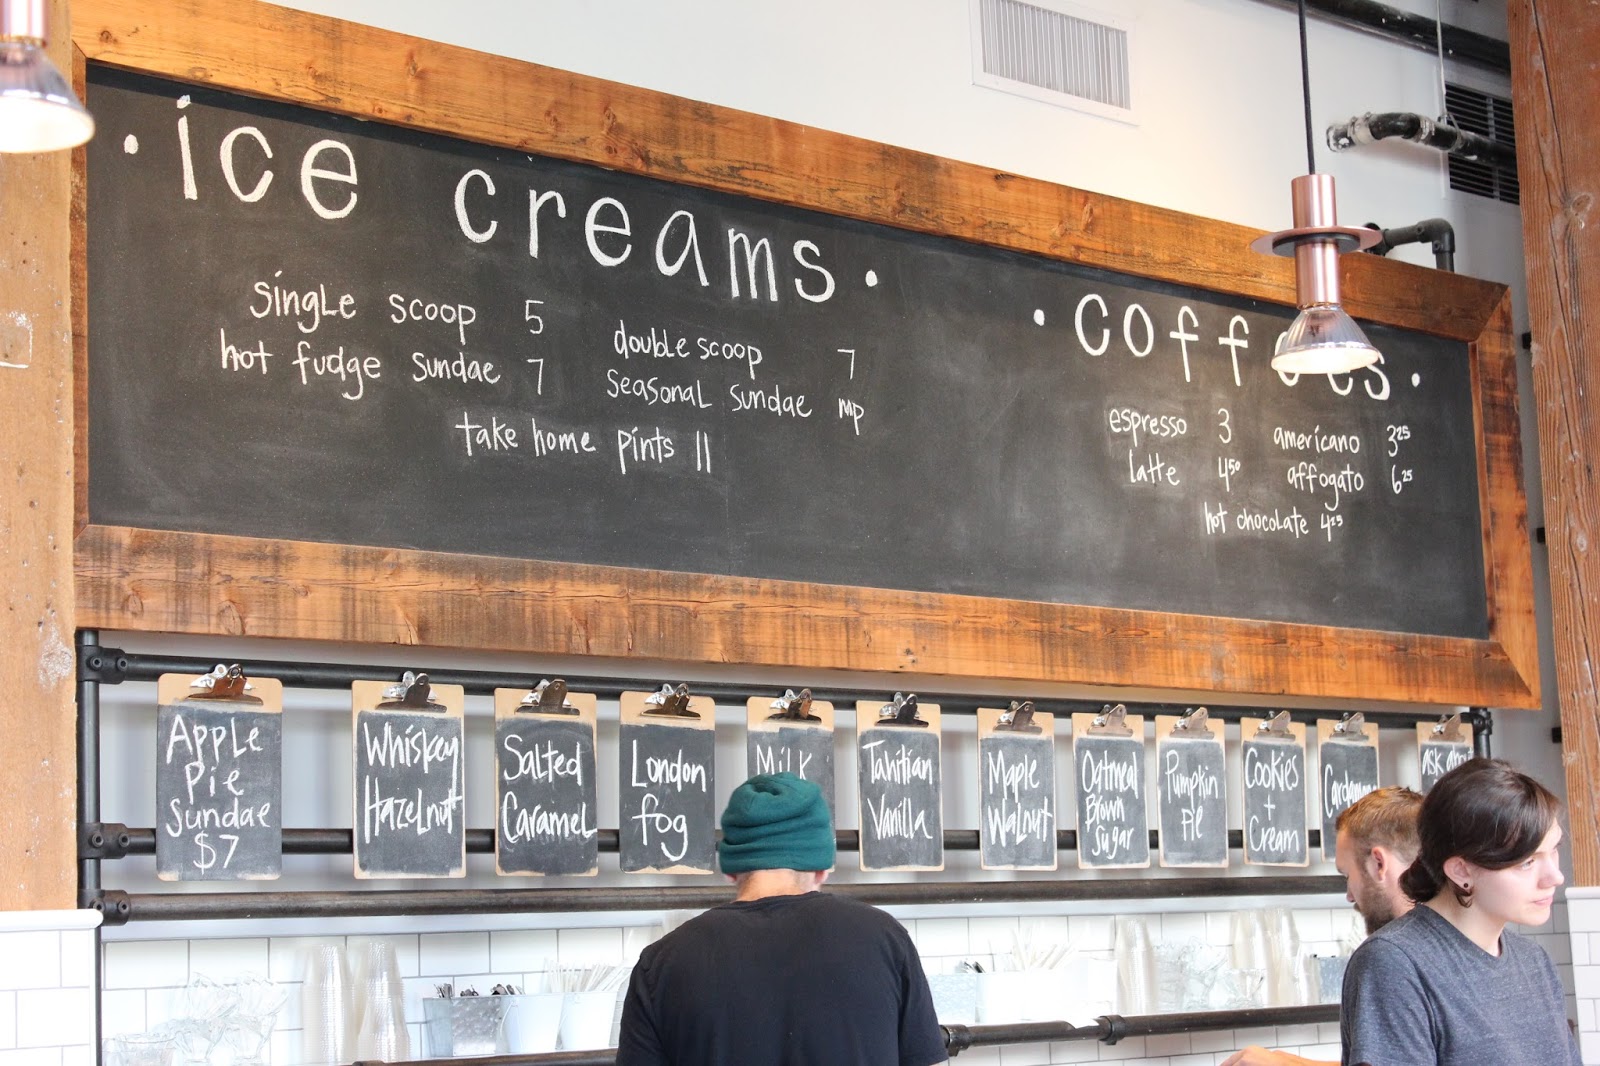 · ice creams ·
single scoop 5
double scoop 7
hot fudge sundae 7
seasonal sundae mp
take home pints 11
· coffees ·
espresso 3
americano 3 25
latte 4 50
affogato 6 25
hot chocolate 4 25
Apple
Pie
Sundae
$7
Whiskey
Hazelnut
Salted
Caramel
London
fog
Milk
Tahitian
Vanilla
Maple
Walnut
Oatmeal
Brown
Sugar
Pumpkin
Pie
Cookies
+
Cream
ask about